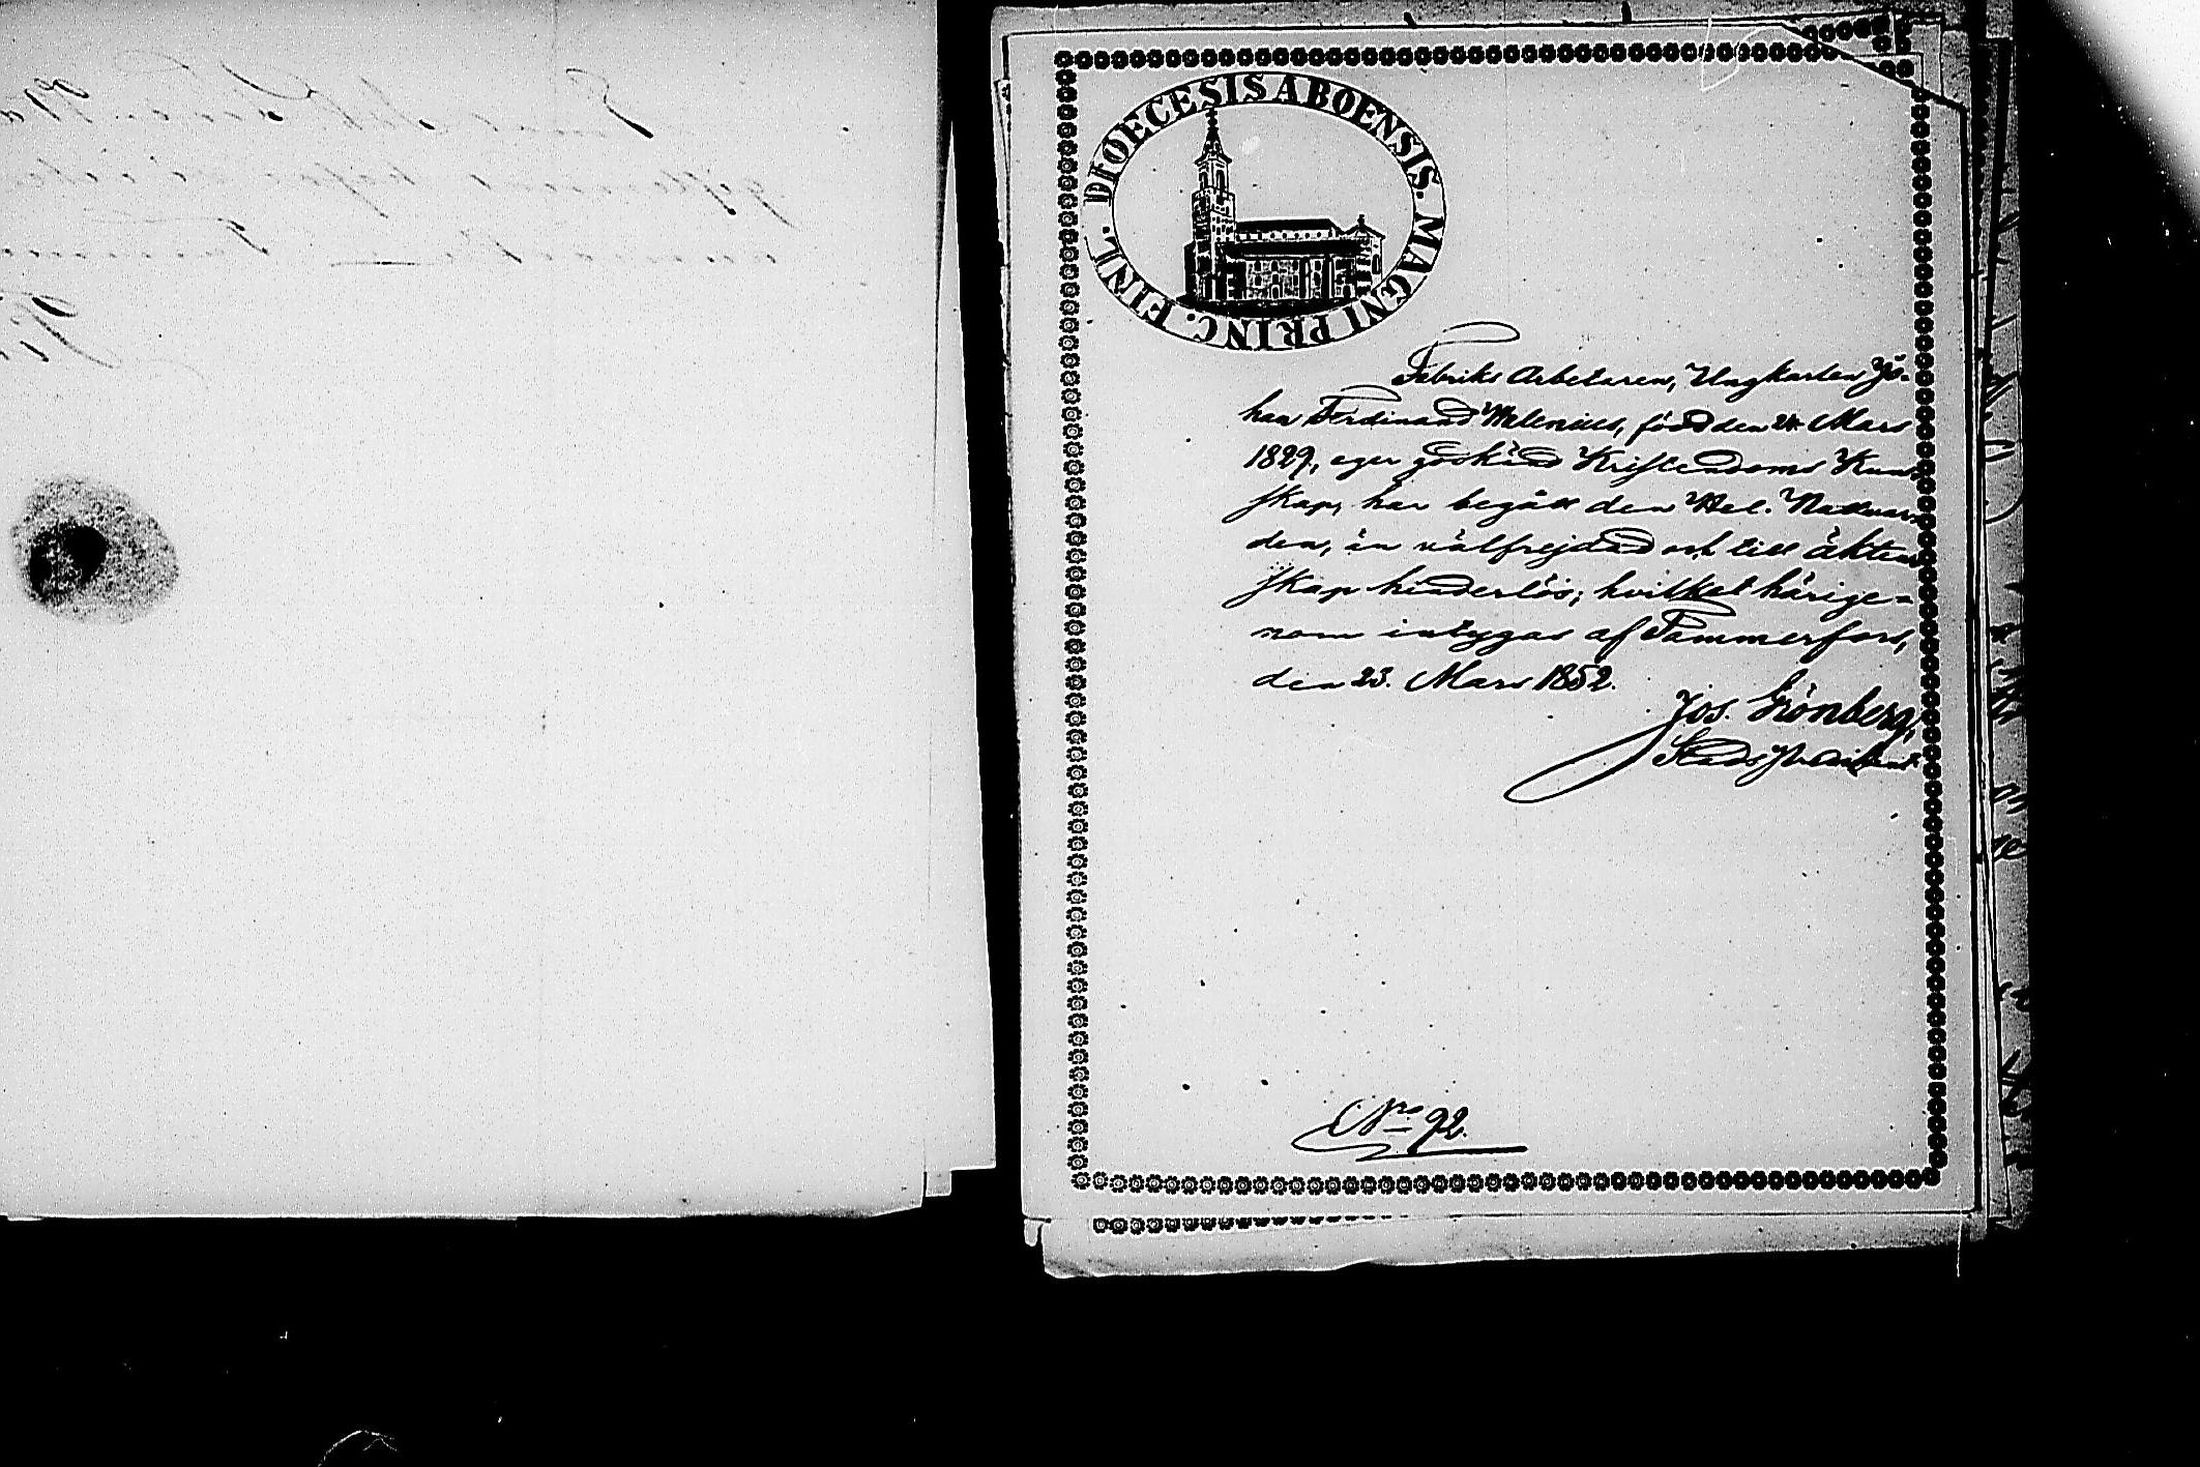 DIOECESIS ABOENSIS. MAGNI PRINC. FINL.
Fabriks Arbetaren, Ungkarlen Jo-
han Ferdinand Melenius, född den 24 Mars
1829, eger godkänd Kristendoms Kun-
skap, har begått den Hel. Nattvar-
den, är välfrejdad och till äkten-
skap hinderlös; hvilket härige-
nom intygas af Tammerfors,
den 23. Mars 1852.
Jos. Grönberg,
Stads Predikant.
Nro 92.